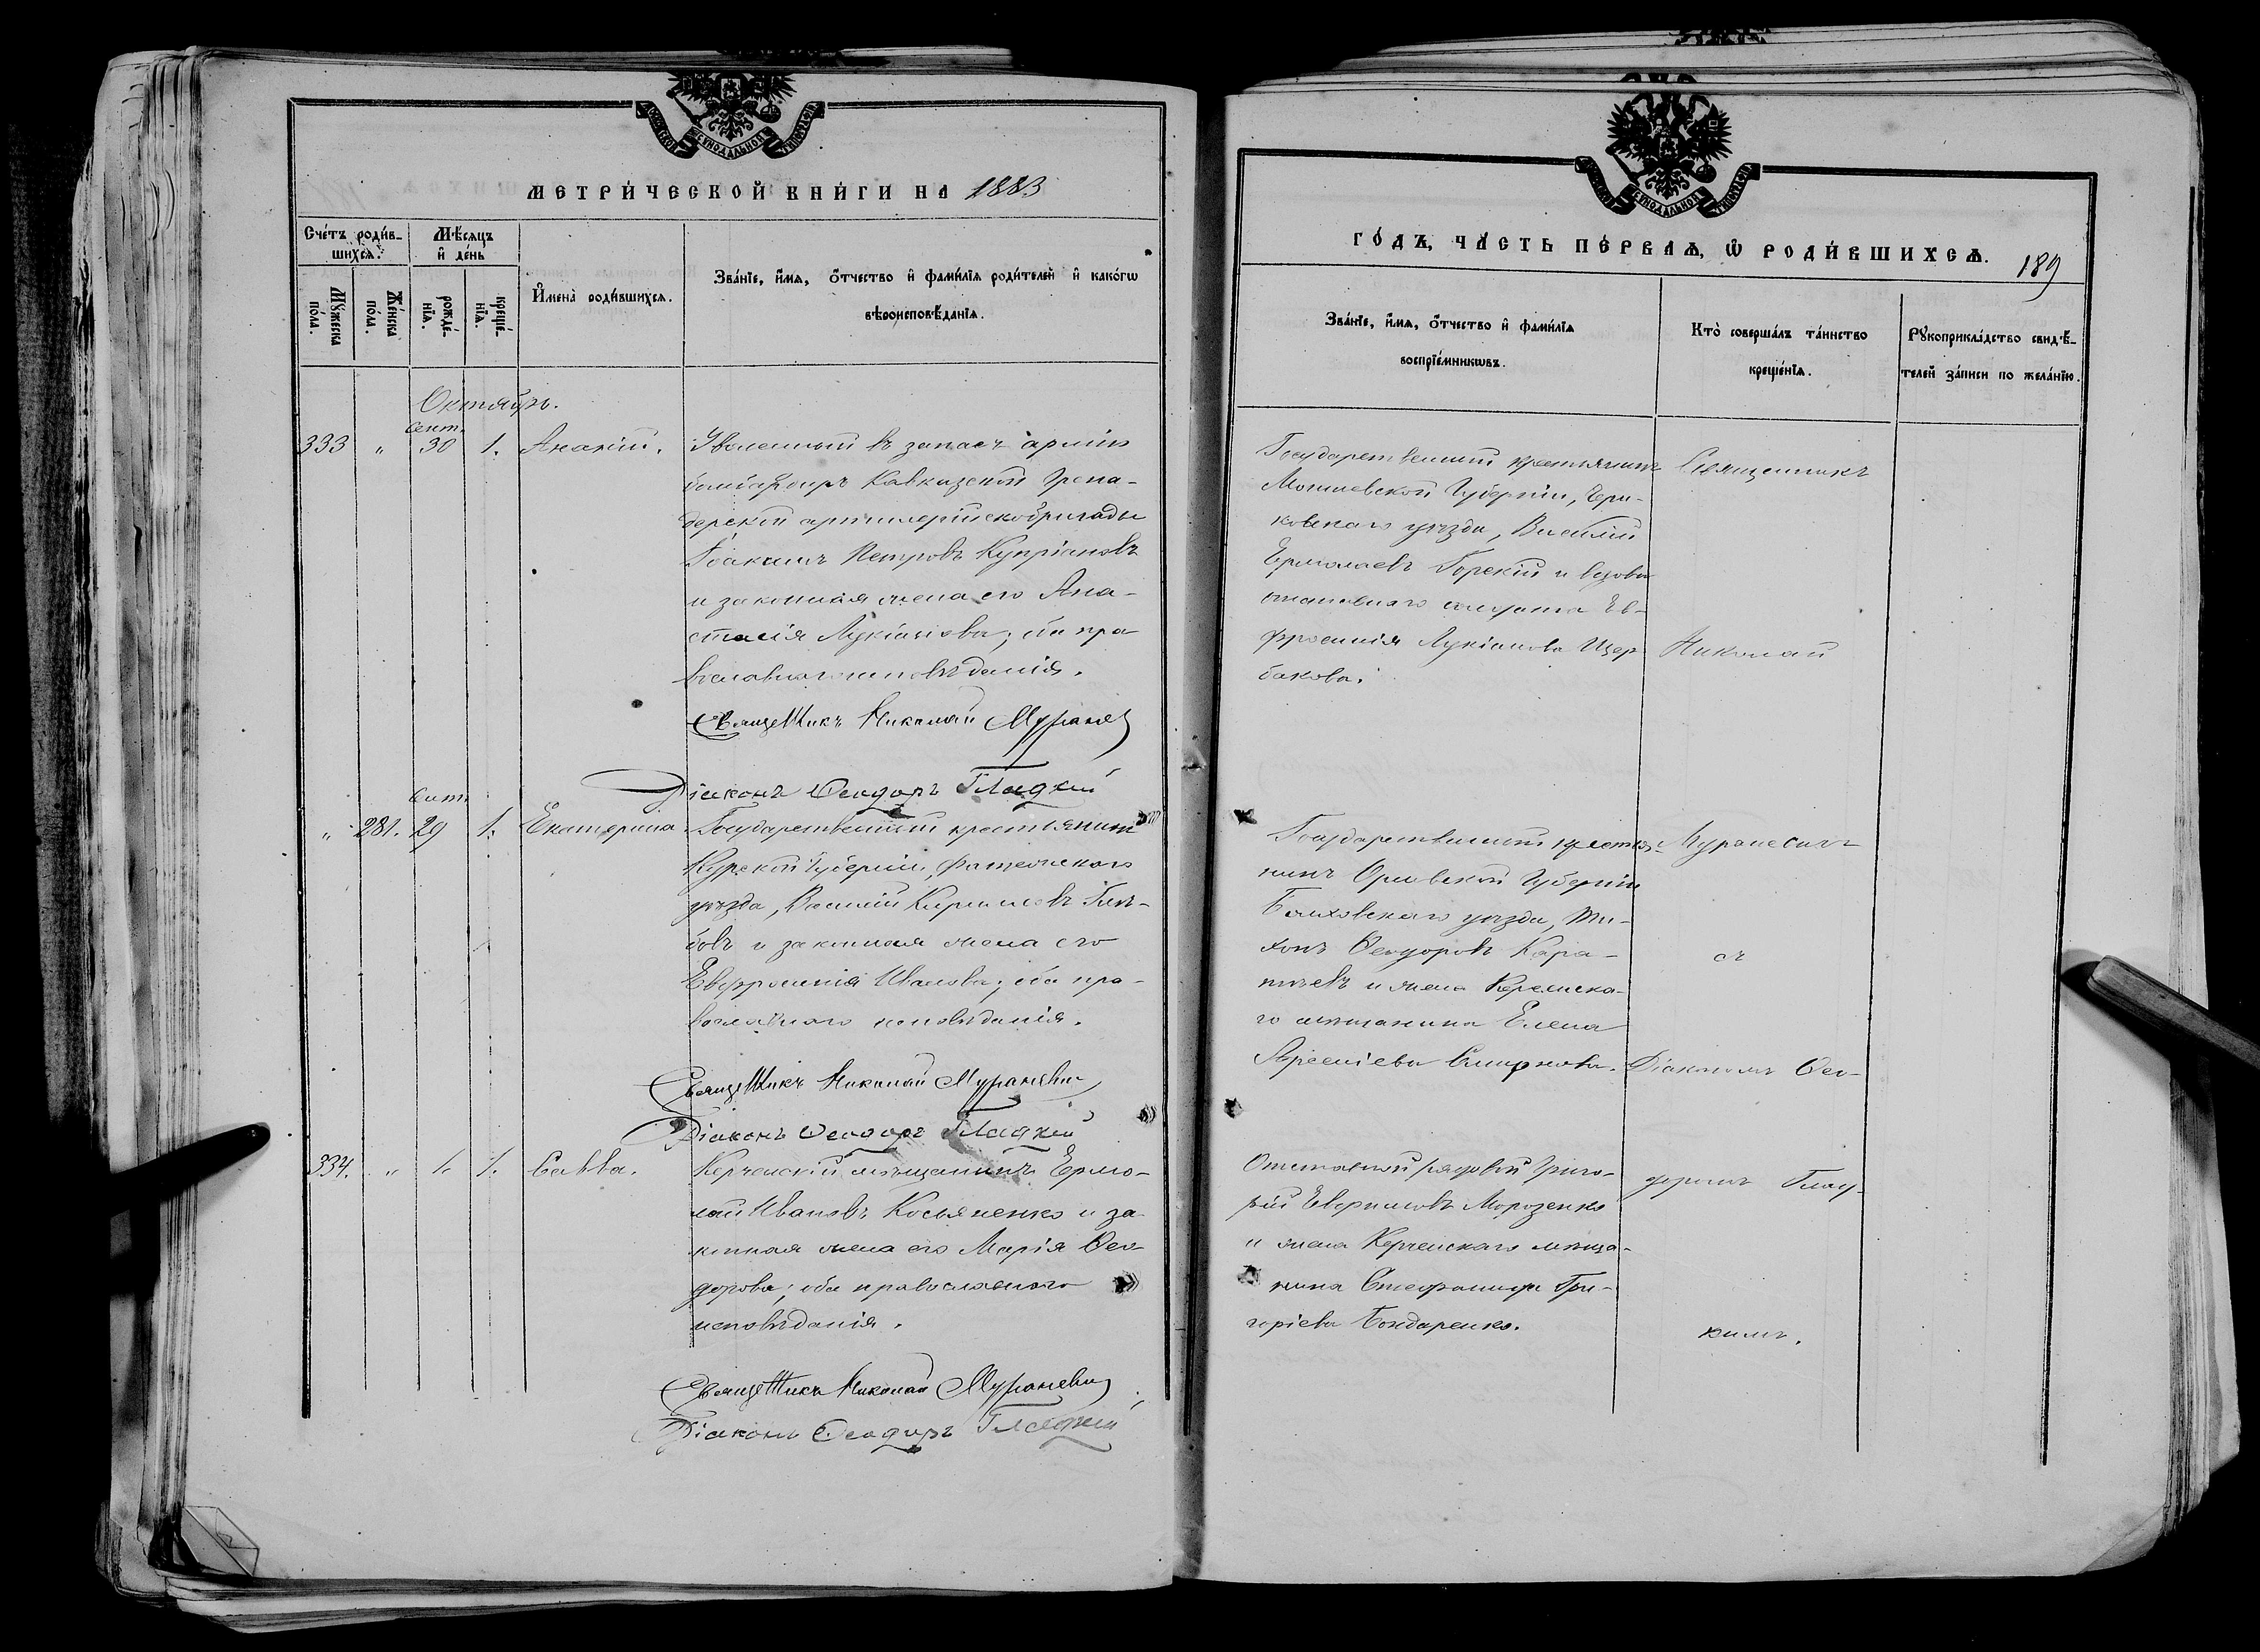 МЕТРИ́ЧЕСКОЙ КНИ́ГИ НА 1883
Сче́тъ роди́в-
шихсѧ.
Мѣ́сѧцъ
и҆ де́нь
Мꙋ́жеска
по́ла.
Же́нска
по́ла.
рожде́-
нїѧ.
креще́-
нїѧ.
И҆мена̀ роди́вшихсѧ.
Зва́нїе, и҆́мѧ, ѻ҆́тчество и҆ фами́лїѧ роди́телей и҆ како́гѡ
вѣроисповѣ́данїѧ.
Октябрь.
Сент.
333 " 30 1. Ананій. Уволенный въ запасъ арміи
бомбардиръ Кавказской Грена-
дерской артиллерійской бригады
Іоакимъ Петровъ Купріановъ
и законная жена его Ана-
стасія Лукіанова; оба пра
вославнаго исповѣданія.
Священникъ Николай Мураневич
Діаконъ Ѳеодоръ Гладкій
Сент.
" 281. 29 1. Екатерина Государственный крестьянинъ
Курской Губерніи, Фатежскаго
уѣзда, Василій Кириловъ Глѣ-
бовъ и законная жена его
Евфросинія Иванова; оба пра-
вославнаго исповѣданія.
Священникъ Николай Мураневич
Діаконъ Ѳеодоръ Гладкій
334. " 1. 1. Савва. Керченскій мѣщанинъ Ермо-
лай Ивановъ Косьяненко и за-
конная жена его Марія Ѳео-
дорова; оба православнаго
исповѣданія.
Священникъ Николай Мураневич
Діаконъ Ѳеодоръ Гладкій
ГО́ДЪ, ЧА́СТЬ ПЕ́РВАѦ, Ѡ҆ РОДИ́ВШИХСѦ. 189
Зва́нїе, и҆́мѧ, ѻ҆́тчество и҆ фами́лїѧ
воспрїе́мникѡвъ.
Кто̀ соверша́лъ та́инство
креще́нїѧ.
Рꙋкоприкла́дство свидѣ́-
телей за́писи по жела́нїю.
Государственный крестьянинъ
Могилевской Губерніи, Чери-
ковскаго уѣзда, Василій
Ермолаевъ Горскій и вдова
отставнаго солдата Ев-
фросинія Лукіанова Щер
бакова.
Государственный крестья-
нинъ Орловской Губерніи
Болховскаго уѣзда, Ти-
хонъ Ѳеодоровъ Кара-
и жена Керченска-
го мѣщанина Елена
Арсеніева Смирнова.
Отставной рядовой Григо-
рій Морозенко
и жена Керченскаго мѣща-
нина Стефанида Гри-
горіева Бондаренко.
Священникъ
Николай
Мураневичъ
съ
Діакономъ Ѳео-
доромъ Глад-
кимъ.